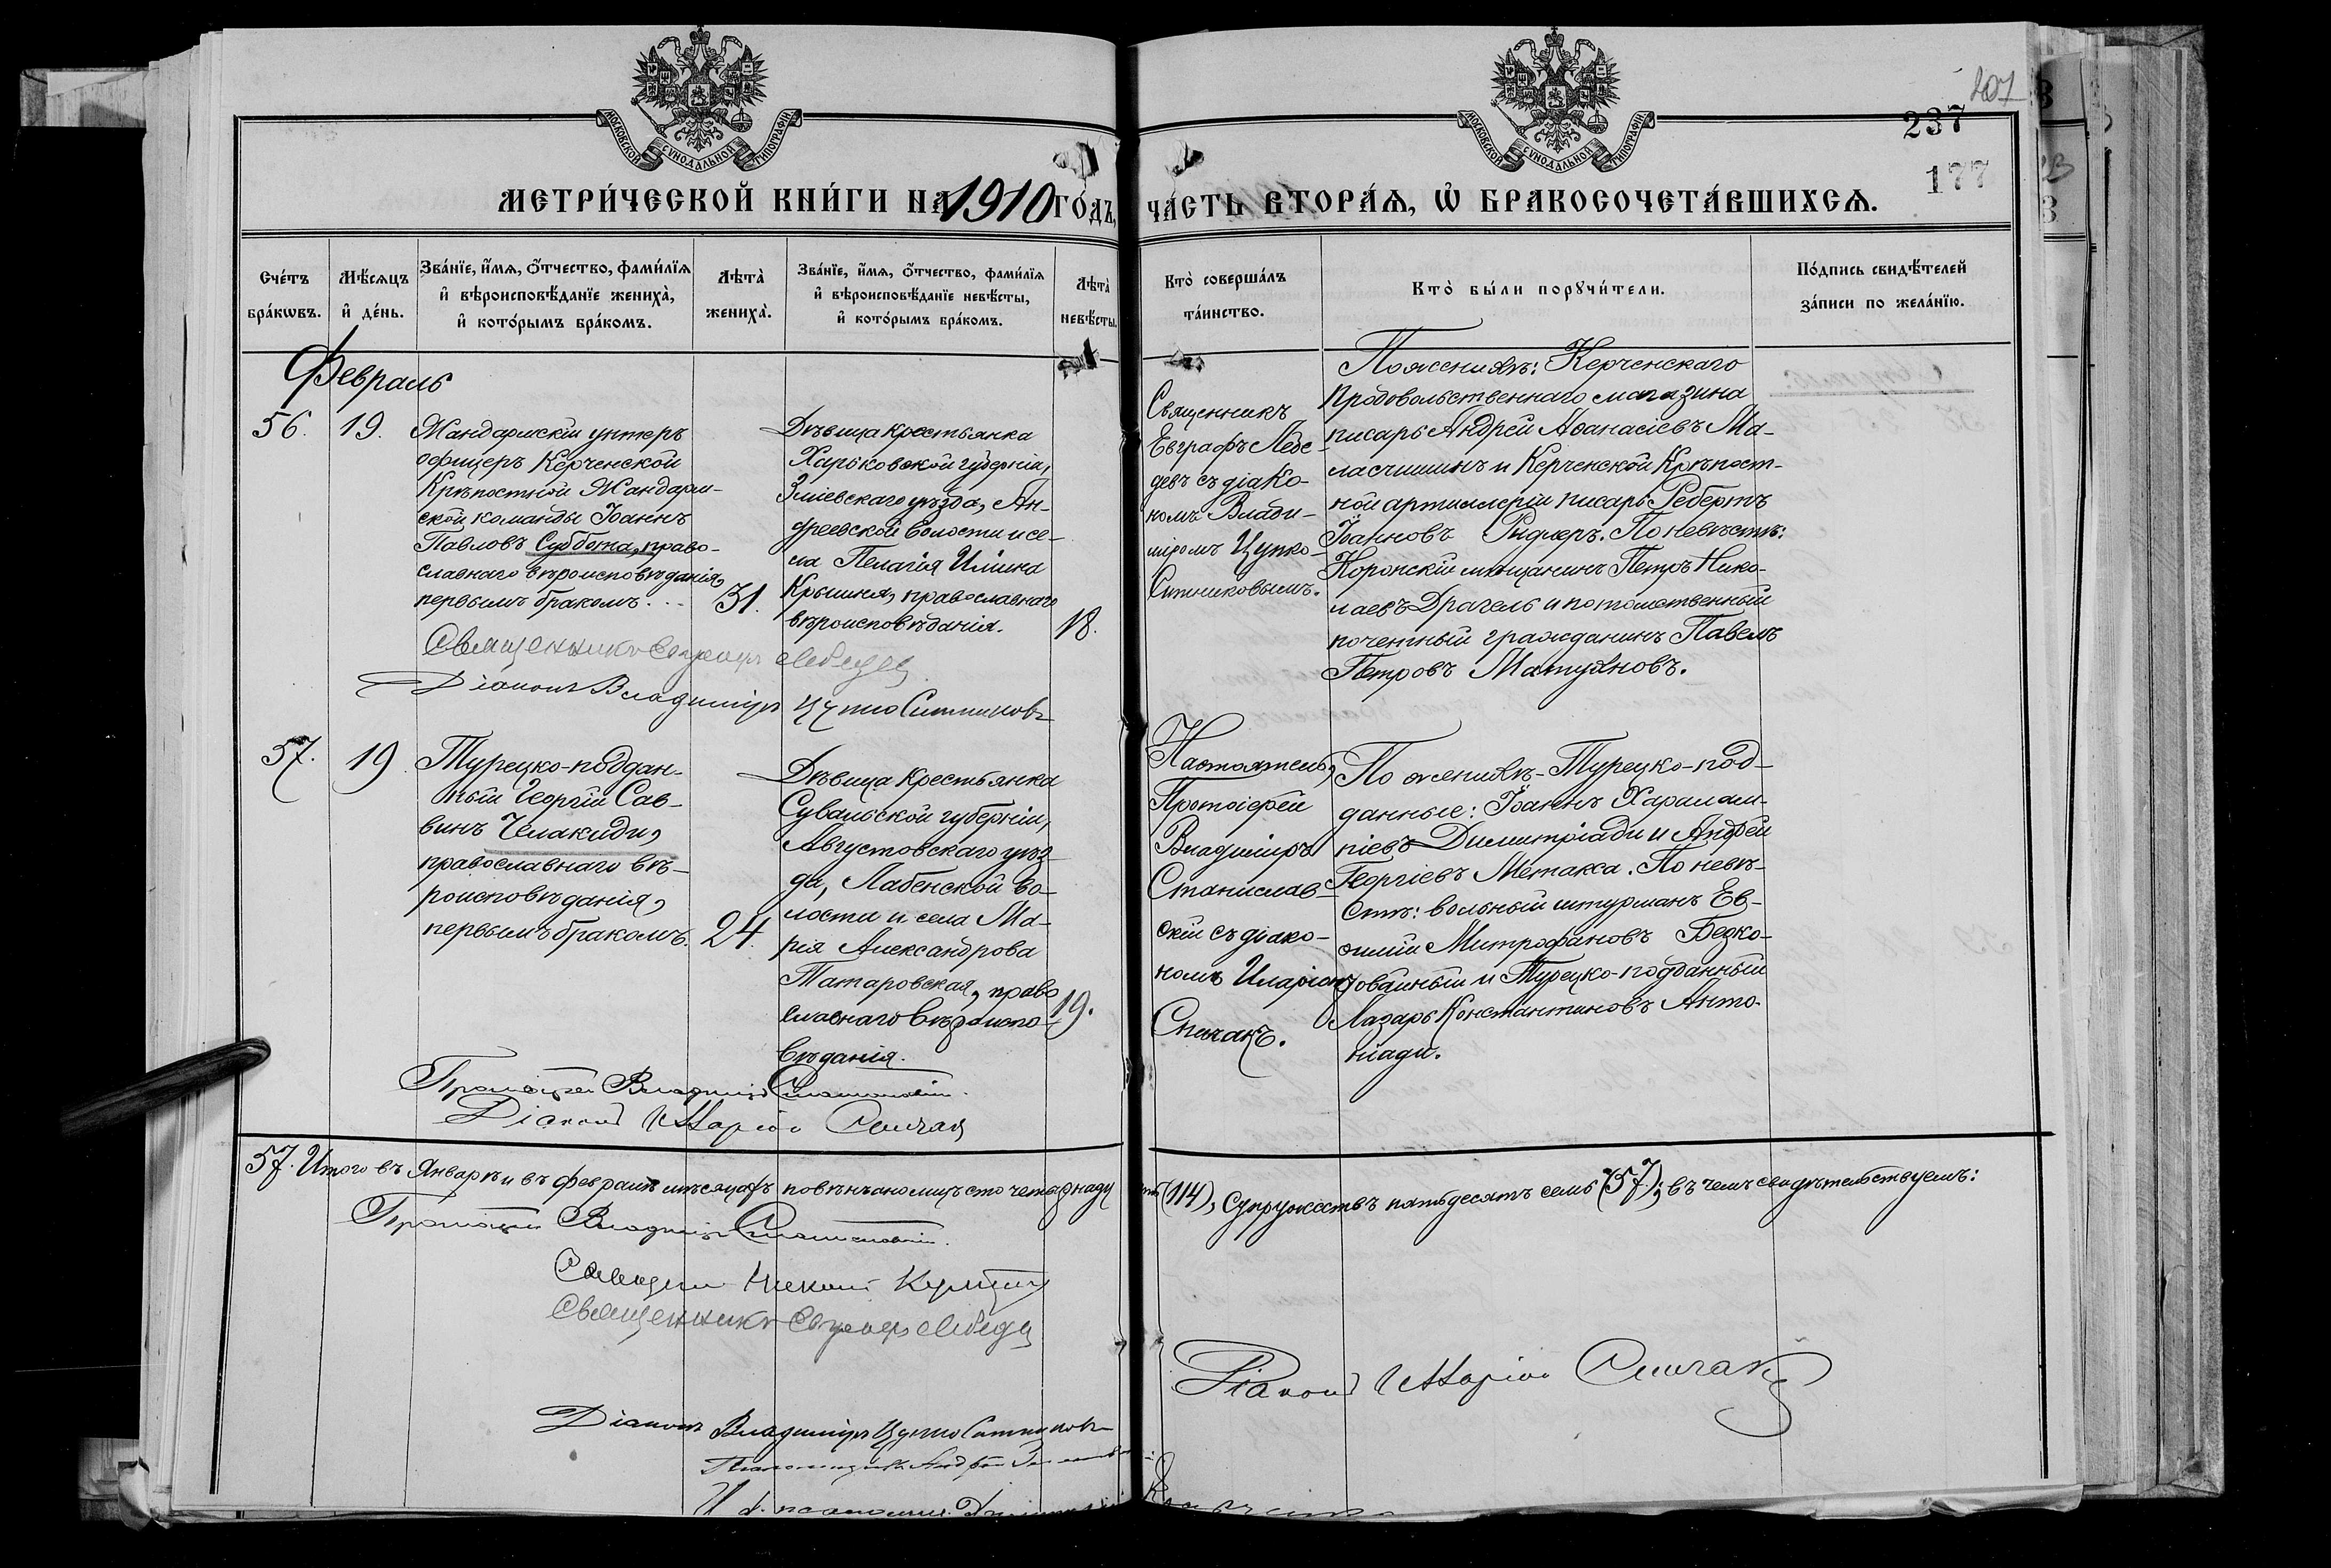 МОСКОВСКОЙ СѴНОДАЛЬНОЙ ТИПОГРАФІИ
МОСКОВСКОЙ СѴНОДАЛЬНОЙ ТИПОГРАФІИ
207
237
177
МЕТРИ́ЧЕСКОЙ КНИ́ГИ НА 1910 ГО́ДЪ,
ЧА́СТЬ ВТОРА́Ѧ, Ѡ҆ БРАКОСОЧЕТА́ВШИХСѦ.
Сче́тъ бра́кѡвъ.
Мѣ́сѧцъ и҆ де́нь.
Зва́нїе, и҆́мѧ, ѻ҆́тчество, фами́лїѧ
и҆ вѣроисповѣ́данїе жениха̀,
и҆ кото́рымъ бра́комъ.
Лѣта̀ жениха̀.
Зва́нїе, и҆́мѧ, ѻ҆́тчество, фами́лїѧ
и҆ вѣроисповѣ́данїе невѣ́сты,
и҆ кото́рымъ бра́комъ.
Лѣта̀ невѣ́сты.
Кто̀ соверша́лъ
та́инство.
Кто̀ бы́ли порꙋчи́тели.
По́дпись свидѣ́телей
за́писи по жела́нїю.
Февраль
56.
19.
Жандармскій унтеръ
офицеръ Керченской
Крѣпостной Жандарм-
ской команды Іоаннъ
Павловъ Субботна, право-
славнаго вѣроисповѣданія,
первымъ бракомъ...
31.
Дѣвица крестьянка
Харьковской губерніи,
Зміевскаго уѣзда, Ан-
дреевской волости и се-
ла Пелагія Иліина
православнаго
вѣроисповѣданія.
18.
Священникъ
Евграфъ Лебе-
девъ съ діако-
номъ Влади-
міромъ Цупко-
Ситниковымъ.
По женихѣ: Керченскаго
продовольственнаго магазина
писарь Андрей Аѳанасіевъ Ма-
и Керченской Крѣпост-
ной артиллеріи писарь Робертъ
Іоанновъ Ридлеръ. По невѣстѣ:
мѣщанинъ Петръ Нико-
лаевъ Драгель и потомственный
почетный гражданинъ Павелъ
Петровъ
Священникъ Евграфъ Лебедев
Діаконъ Владимиръ Цупко Ситниковъ
57.
19.
Турецко-поддан-
ный Георгій Сав-
винъ Челакиди,
православнаго вѣ-
роисповѣданія,
первымъ бракомъ.
24.
Дѣвица крестьянка
Сувальской губерніи,
Августовскаго уѣз-
да, Лабенской во-
лости и села Ма-
рія Александрова
Татаровская, право
славнаго вѣроиспо-
вѣданія.
19.
Настоятель,
Протоіерей
Владиміръ
Станислав-
скій съ діако-
номъ Иларіон
Спичакъ.
По женихѣ - Турецко-под-
данные: Іоаннъ Харалам-
піевъ Димитріади и Андрей
Георгіевъ Метакса. По невѣ-
стѣ: вольный штурманъ Ев-
ѳимій Митрофановъ Безко-
ровайный и Турецко-подданный
Лазарь Константиновъ Анто-
ніади.
Протоіерей Владимір Станиславскій.
Діаконъ Иларіонъ Спичак
57. Итого въ Январѣ и въ февралѣ мѣсяцахъ повѣнчано лицъ сто четырнадцать (114), супружествъ пятьдесятъ семь (57); въ чемъ свидѣтельствуемъ:
Протоіерей Владимір Станиславскій.
Священникъ Николай
Священникъ Евграфъ Лебедев
Діаконъ Иларіонъ Спичакъ
Діаконъ Владимиръ Цупко Ситниковъ
Псаломщикъ Андрей